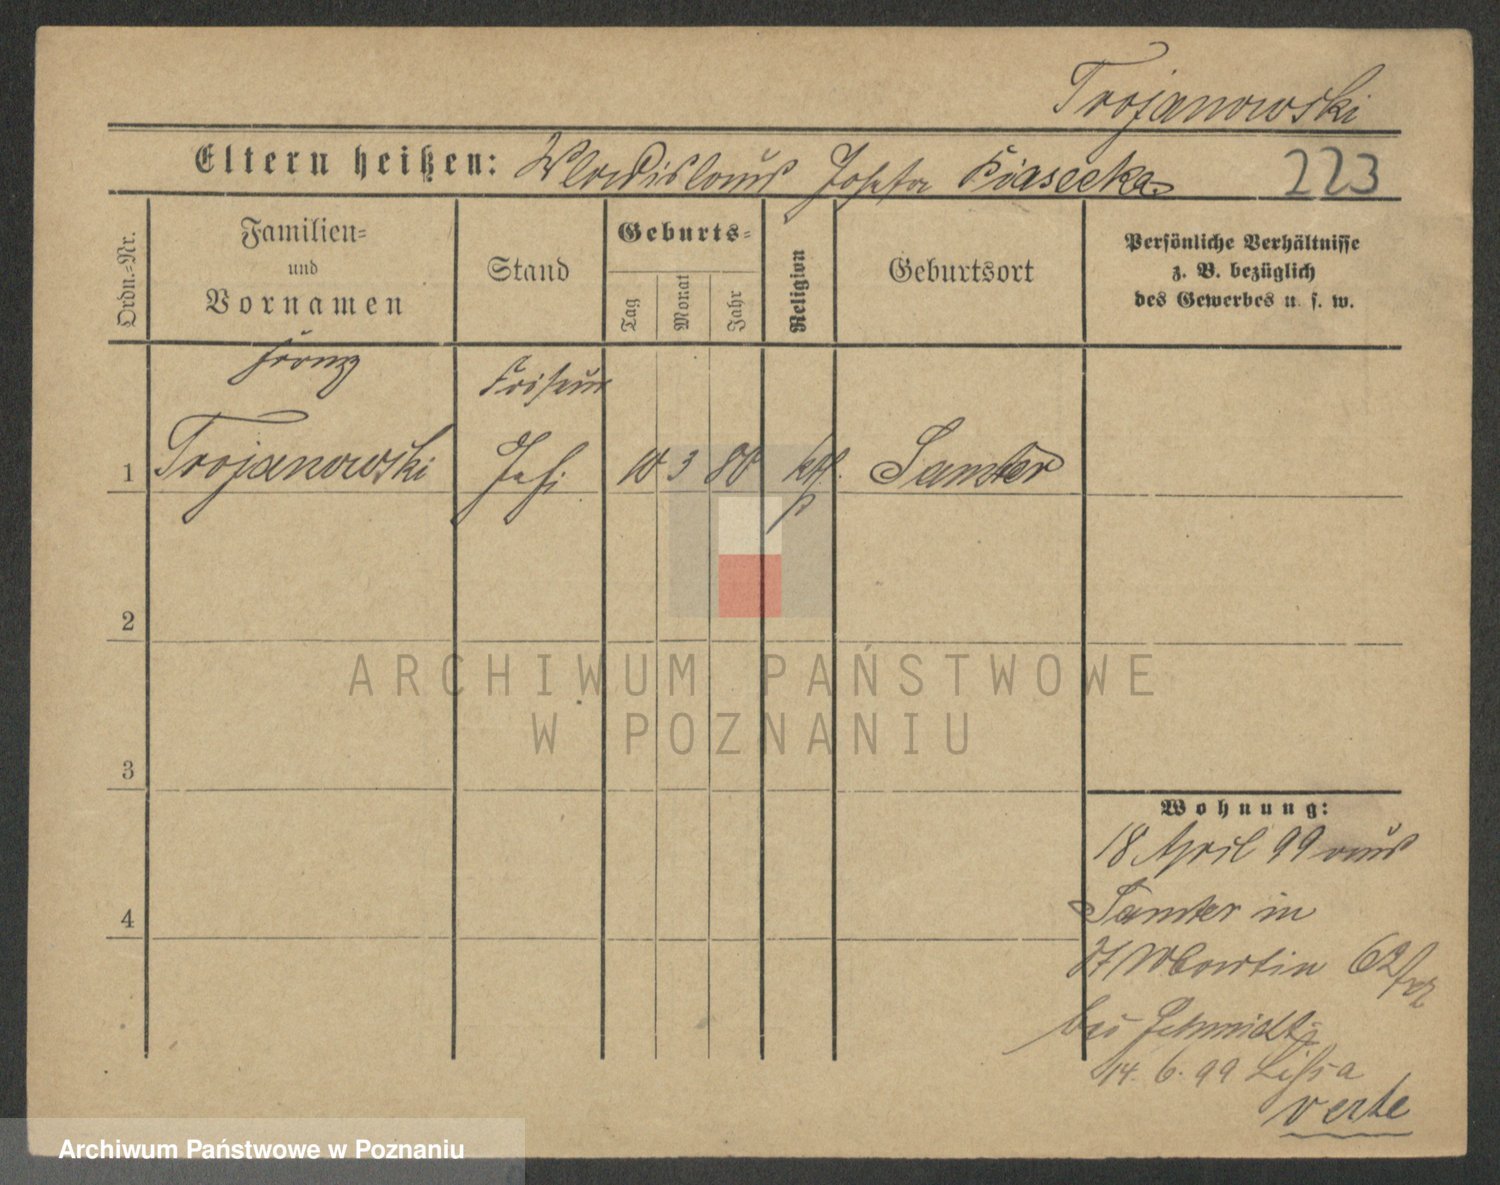 Trojanowski
Eltern heißen: Wladislaus Josefa Piasecka
223
Ordn.=Nr.
Familien=
und
Vornamen
Stand
Geburts=
Tag
Monat
Jahr
Religion
Geburtsort
Persönliche Verhältnisse
z. B. bezüglich
des Gewerbes u. s. w.
Franz
Friseur
1 Trojanowski Geh. 10 3 80 kath. Samter
2
ARCHIWUM PAŃSTWOWE
W POZNANIU
3
Wohnung:
18 April 99 aus
4
Samter in
St Martin 62
bei Schmidt
14. 6. 99 Lissa
verte
Archiwum Państwowe w Poznaniu